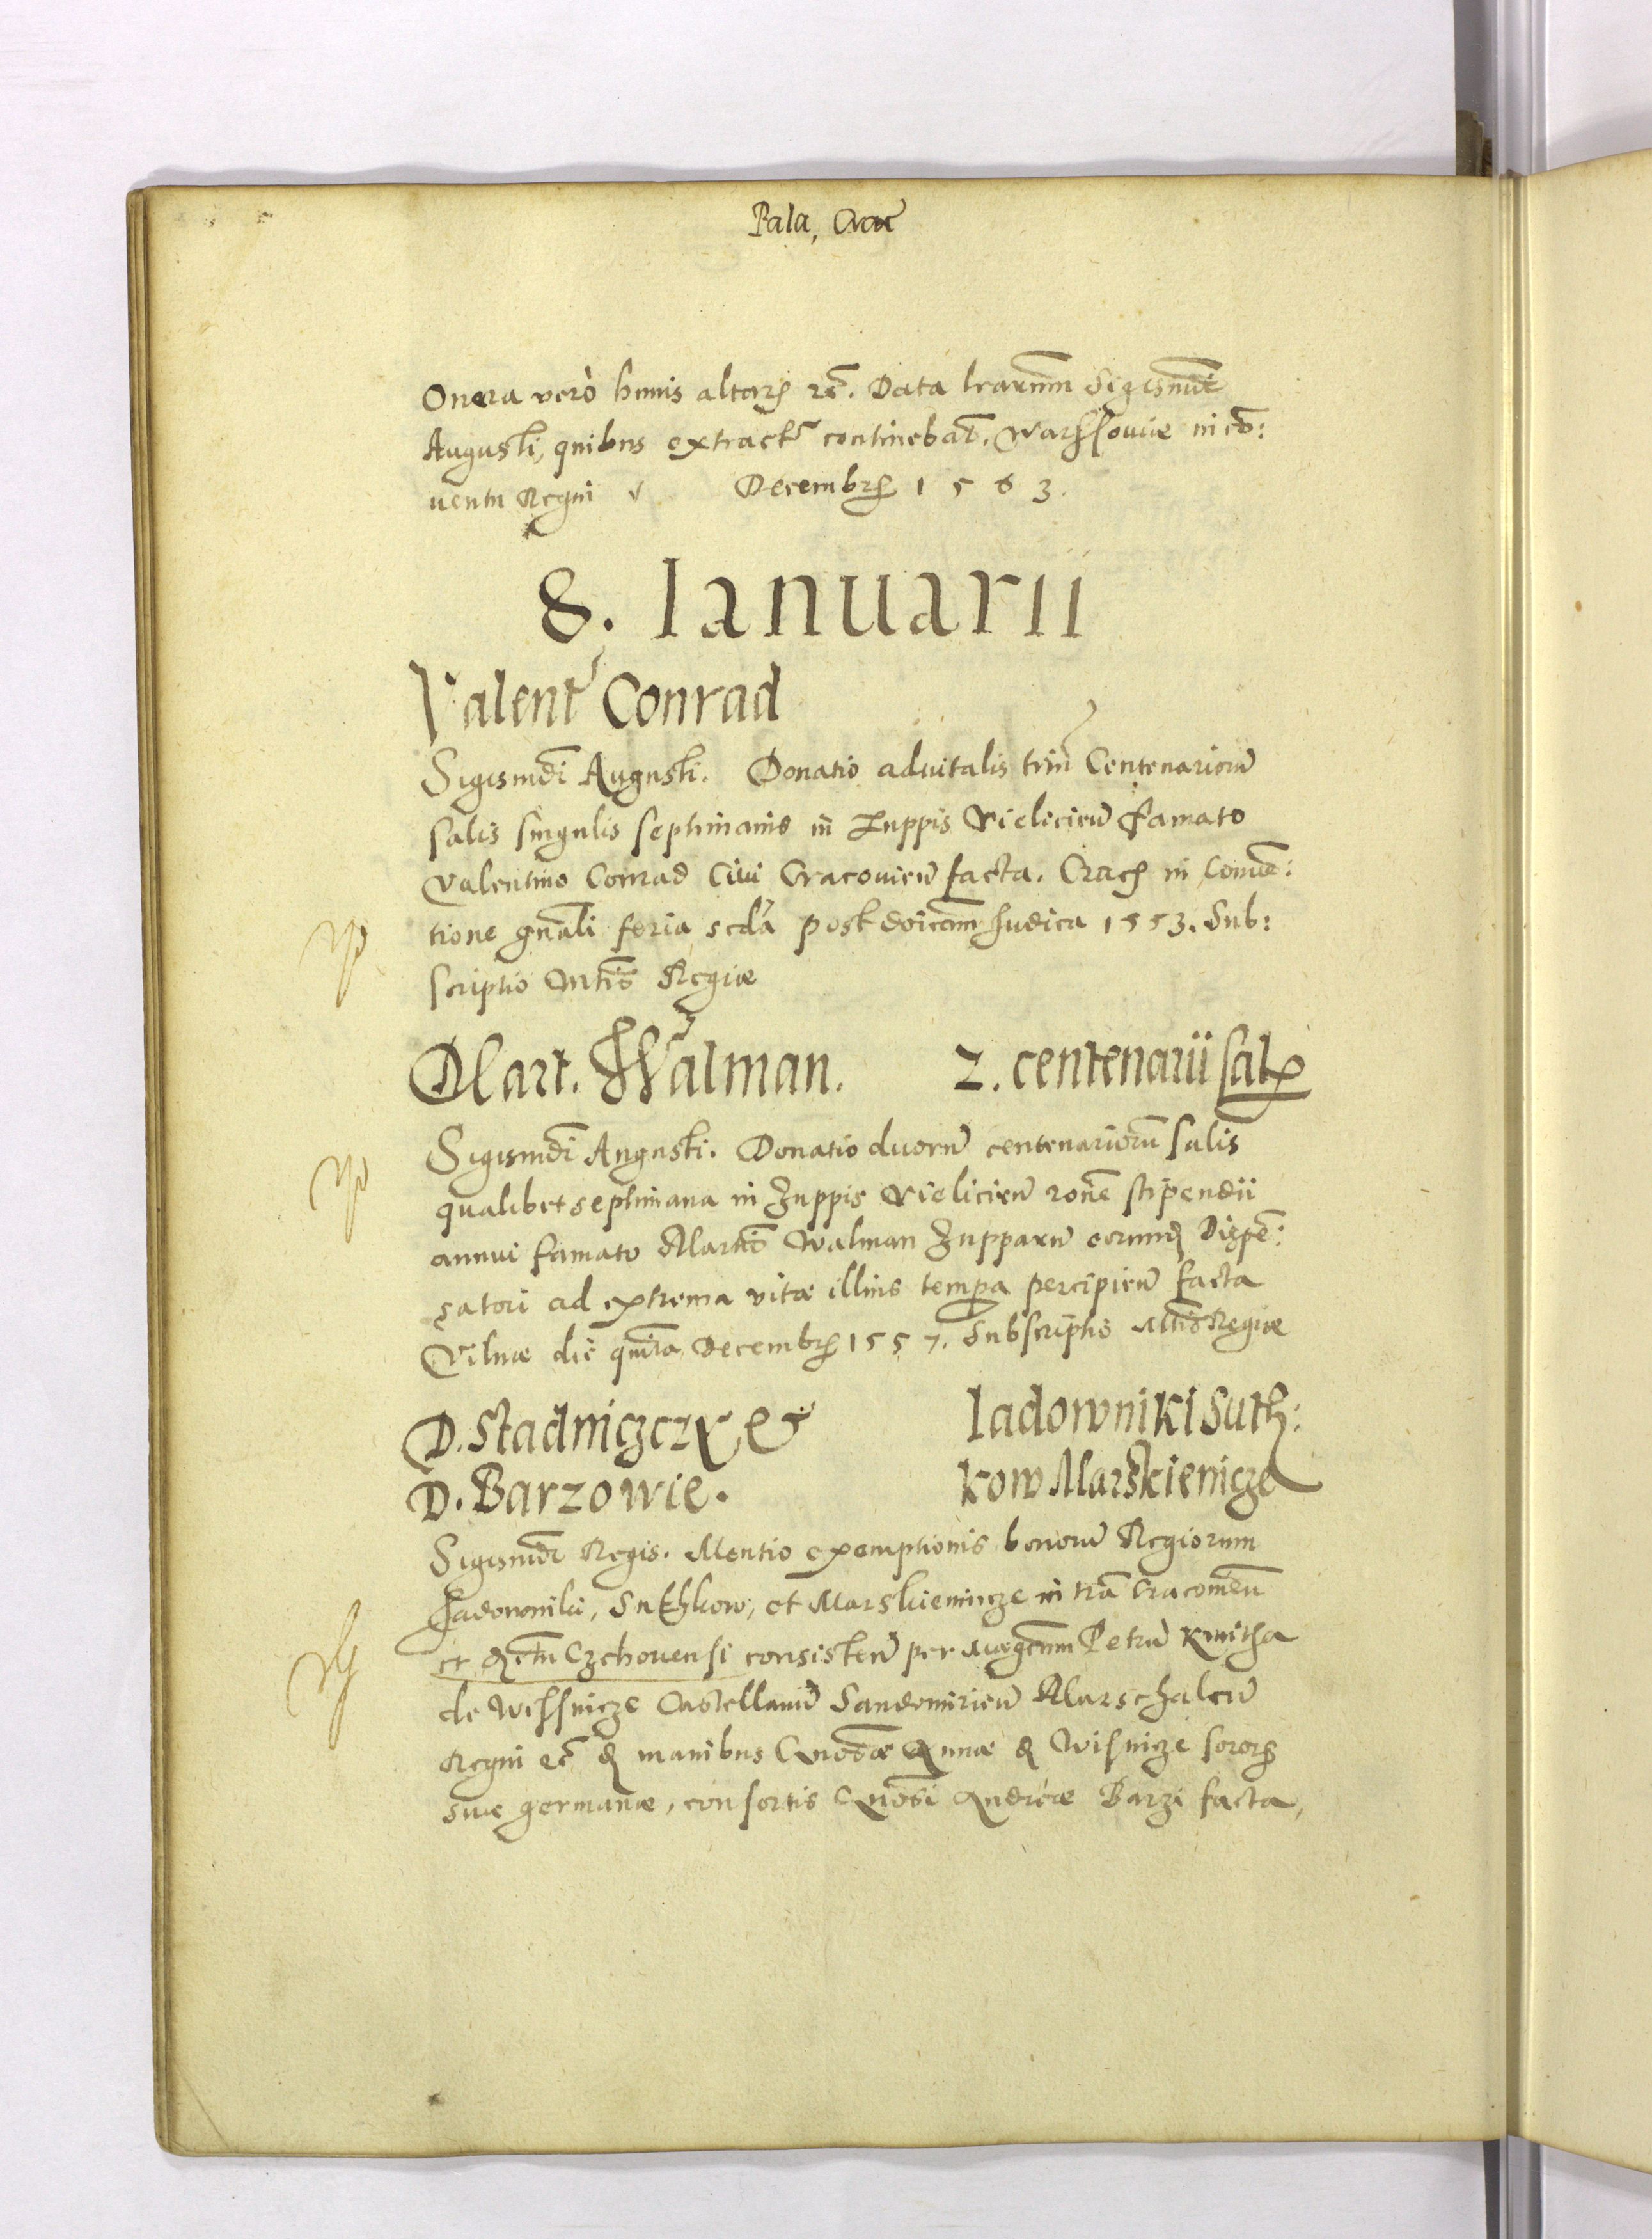 Pala, Crac
Onera verò huius altaris etc. Data lrarum Sigismudi
Augusti, quibus extractus continebat. Warssouiae in co:
uentu Regni Decembris 1563.
8. Ianuarii
Valent Conrad
Sigismdi Augusti. Donatio aduitalis trium Centenarioru
salis singulis septimanis in Zuppis Vielicien Famato
Valentino Conrad Ciui Cracouien facta. Crac in Conue:
tione gnali feria scda post doicam Iudica 1553. Sub:
scriptio Mtis Regiae
Mart. Walman. 2. centenarii salis
Sigismdi Augusti. Donatio duoru centenarioru salis
qualibet septimana in Zuppis Vielicien rone stipendii
annui famato Martino Walman Zupparu earund Dispe:
satori ad extrema vitae illius tempora percipien facta
Vilnae die quinta Decembris 1557. Subscriptio Mtis Regiae
D. Stadniczczy et Iadowniki Suth:
D. Barzowie. kow Marskienicze
Sigismdi Regis. Mentio exemptionis bonoru Regiorum
Iadowniki, Suthkow, et Marskienicze in tra Cracouien
et distu Czchouensi consisten per Magcum Petru Kmitha
de Wissnicze Castellanu Sandomirien Marschalcu
Regni etc de manibus Gnosae Annae de Wisnicze sororis
suae germanae, consortis Gnosi Andreae Barzi facta,